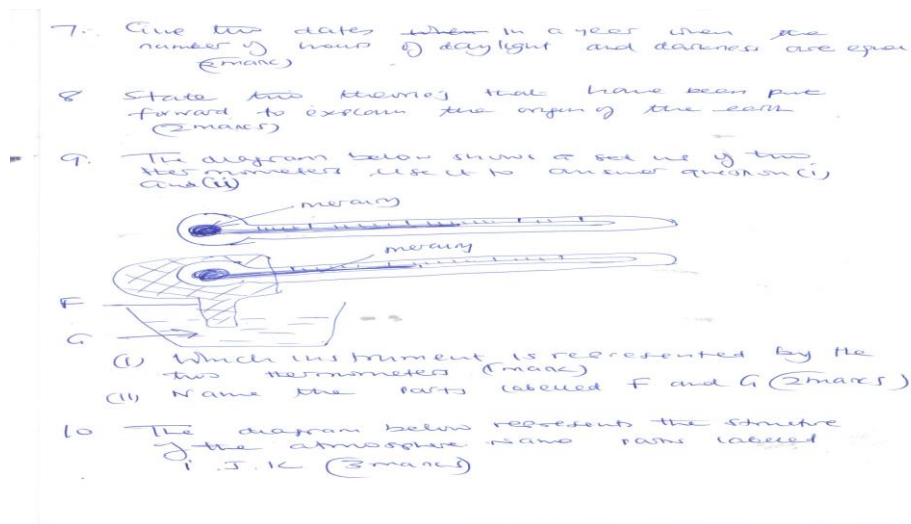 7. Give two dates when in a year when the
number of hours of daylight and darkness are equal
(2marks)
8 State two theories that have been put
forward to explain the origin of the earth
(2marks)
9. The diagram below shows a set up of two
thermometers. Use it to answer question (i)
and (ii)
mercury
mercury
F
G
(i) Which instrument is represented by the
two thermometers (1mark)
(ii) Name the parts labelled F and G (2marks)
10 The diagram below represents the structure
of the atmosphere Name parts labelled
i J. K (3marks)